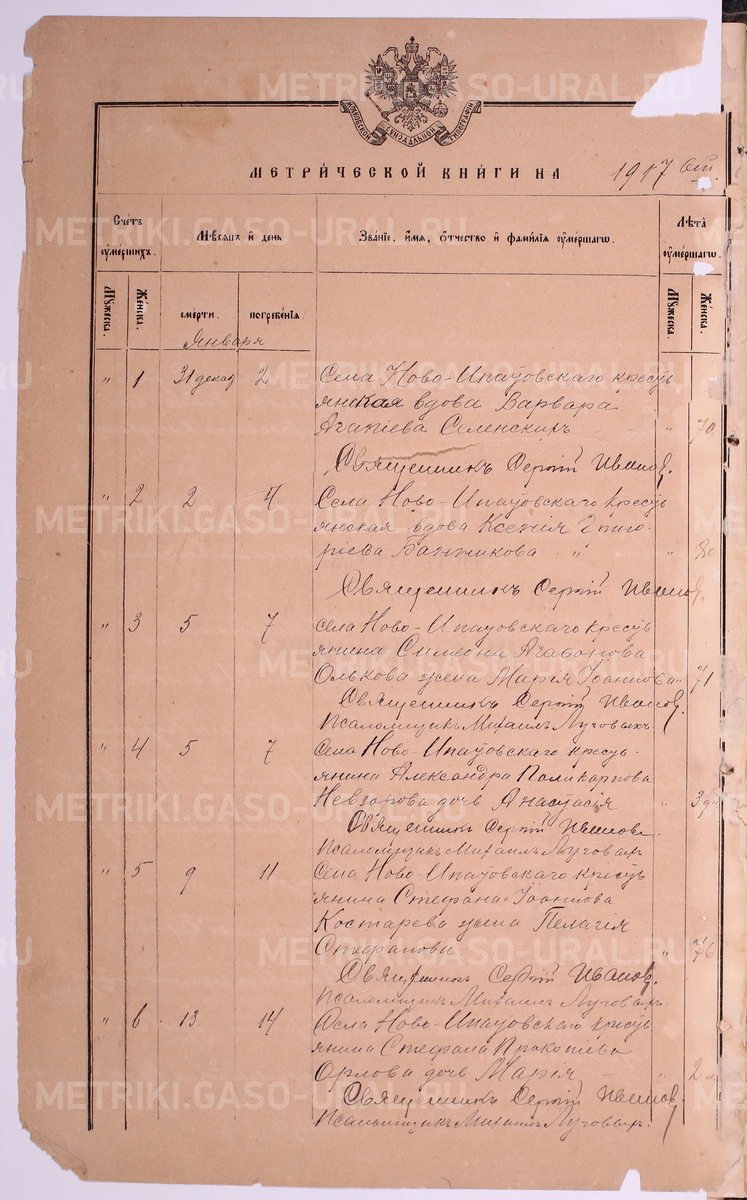 МОСКОВСКОЙ СѴНОДАЛЬНОЙ ТИПОГРАФІИ
МЕТРИ́ЧЕСКОЙ КНИ́ГИ НА 1917
Счетъ ᲂу҆ме́ршихъ.
Мѣ́сяцъ и҆ день
Зва́нїе, и҆́мѧ, ѻ҆́тчество и҆ фами́лїѧ ᲂу҆ме́ршагѡ.
Лѣ́та ᲂу҆ме́ршагѡ.
Мꙋ́жеска.
Же́нска.
сме́рти.
погребе́нїѧ.
Мꙋ́жеска.
Же́нска.
Января
" 1 31 декаб 2 Села Ново-Ипатовскаго кресть
янская вдова Варвара
Агапіева Селенскихъ " 70
Священникъ Сергій Ивановъ.
" 2 2 4 Села Ново-Ипатовскаго кресть
янская вдова Ксенія Григо-
ріева Банникова " " 80
Священникъ Сергій Ивановъ.
" 3 5 7 Села Ново-Ипатовскаго кресть
янина Симеона Агафонова
Олькова жена Марія Іоаннова " 71
Священникъ Сергій Ивановъ.
Псаломщикъ Михаилъ Луговыхъ
" 4 5 7 Села Ново-Ипатовскаго кресть-
янина Александра Поликарпова
Невзорова дочь Анастасія " 3
Священникъ Сергій Ивановъ.
Псаломщикъ Михаилъ Луговыхъ
" 5 9 11 Села Ново-Ипатовскаго кресть
янина Стефана Іоаннова
Костарева жена Пелагія
Стефановна " 76
Священникъ Сергій Ивановъ.
Псаломщикъ Михаилъ Луговыхъ.
" 6 13 14 Села Ново-Ипатовскаго кресть
янина Стефана Прокопіева
Орлова дочь Марія " 2
Священникъ Сергій Ивановъ.
Псаломщикъ Михаилъ Луговыхъ.
METRIKI.GASO-URAL.RU